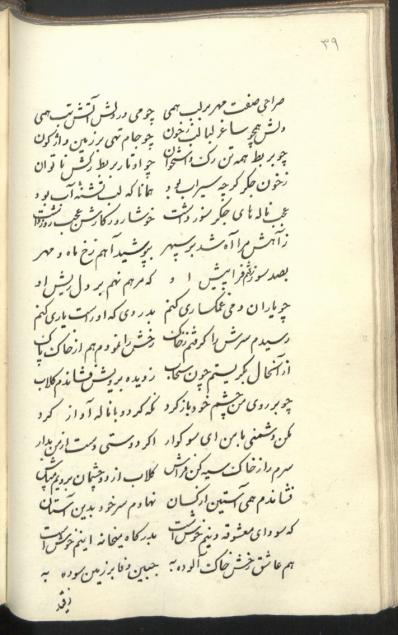 ۳۹
صراحی صفت مهر بر لب همی چو می در دلش آتش تب همی
دلش همچو ساغر لبالب ز خون چو جام تهی بر زمین واژگون
چو بربط همه تن رگ و استخوان چو اوتار بربط رگش ناتوان
ز خون جگر گرچه سیراب بود همانا که لب تشنه آب بود
عجب ناله های جگر سوز داشت خوشا روزگارش عجب روز داشت
ز آهش مرا آه شد بر سپهر بپوشید آهم رخ ماه و مهر
بصد سوز رفتم فرا پیش او که مرهم نهم بر دل ریش او
چو یاران دمی غمگساری کنم بدردی که او راست یاری کنم
رسیدم سرش را گرفتم ز خاک رخش را نمودم هم از خاک پاک
از آنحال بگریستم چون سحاب ز دیده برویش فشاندم گلاب
چو بر روی من چشم خود باز کرد نگه کرد و با ناله آواز کرد
مکن دشمنی با من ای سوگوار اگر دوستی دست از من بدار
سرم را ز خاک سیه کن فراش گلاب از دو چشمان برویم مپاش
فشاندم همی آستین از کسان نهادم سر خود بدین آستان
که سودای معشوقه دینم خوش است بدرگاه میخانه اینم خوش است
هم عاشق رخش خاک آلوده به جبین وفا بر زمین سوده به